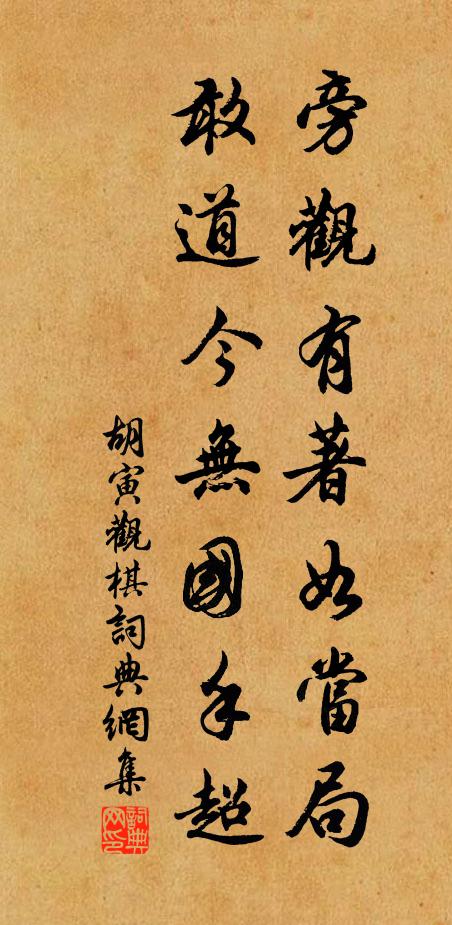 旁觀有著如當局
敢道今無國手超
胡寅觀棋詞典網集
詞典网印